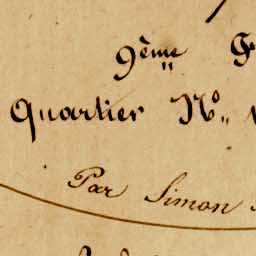 9ème F
Quartier No
Par Simon